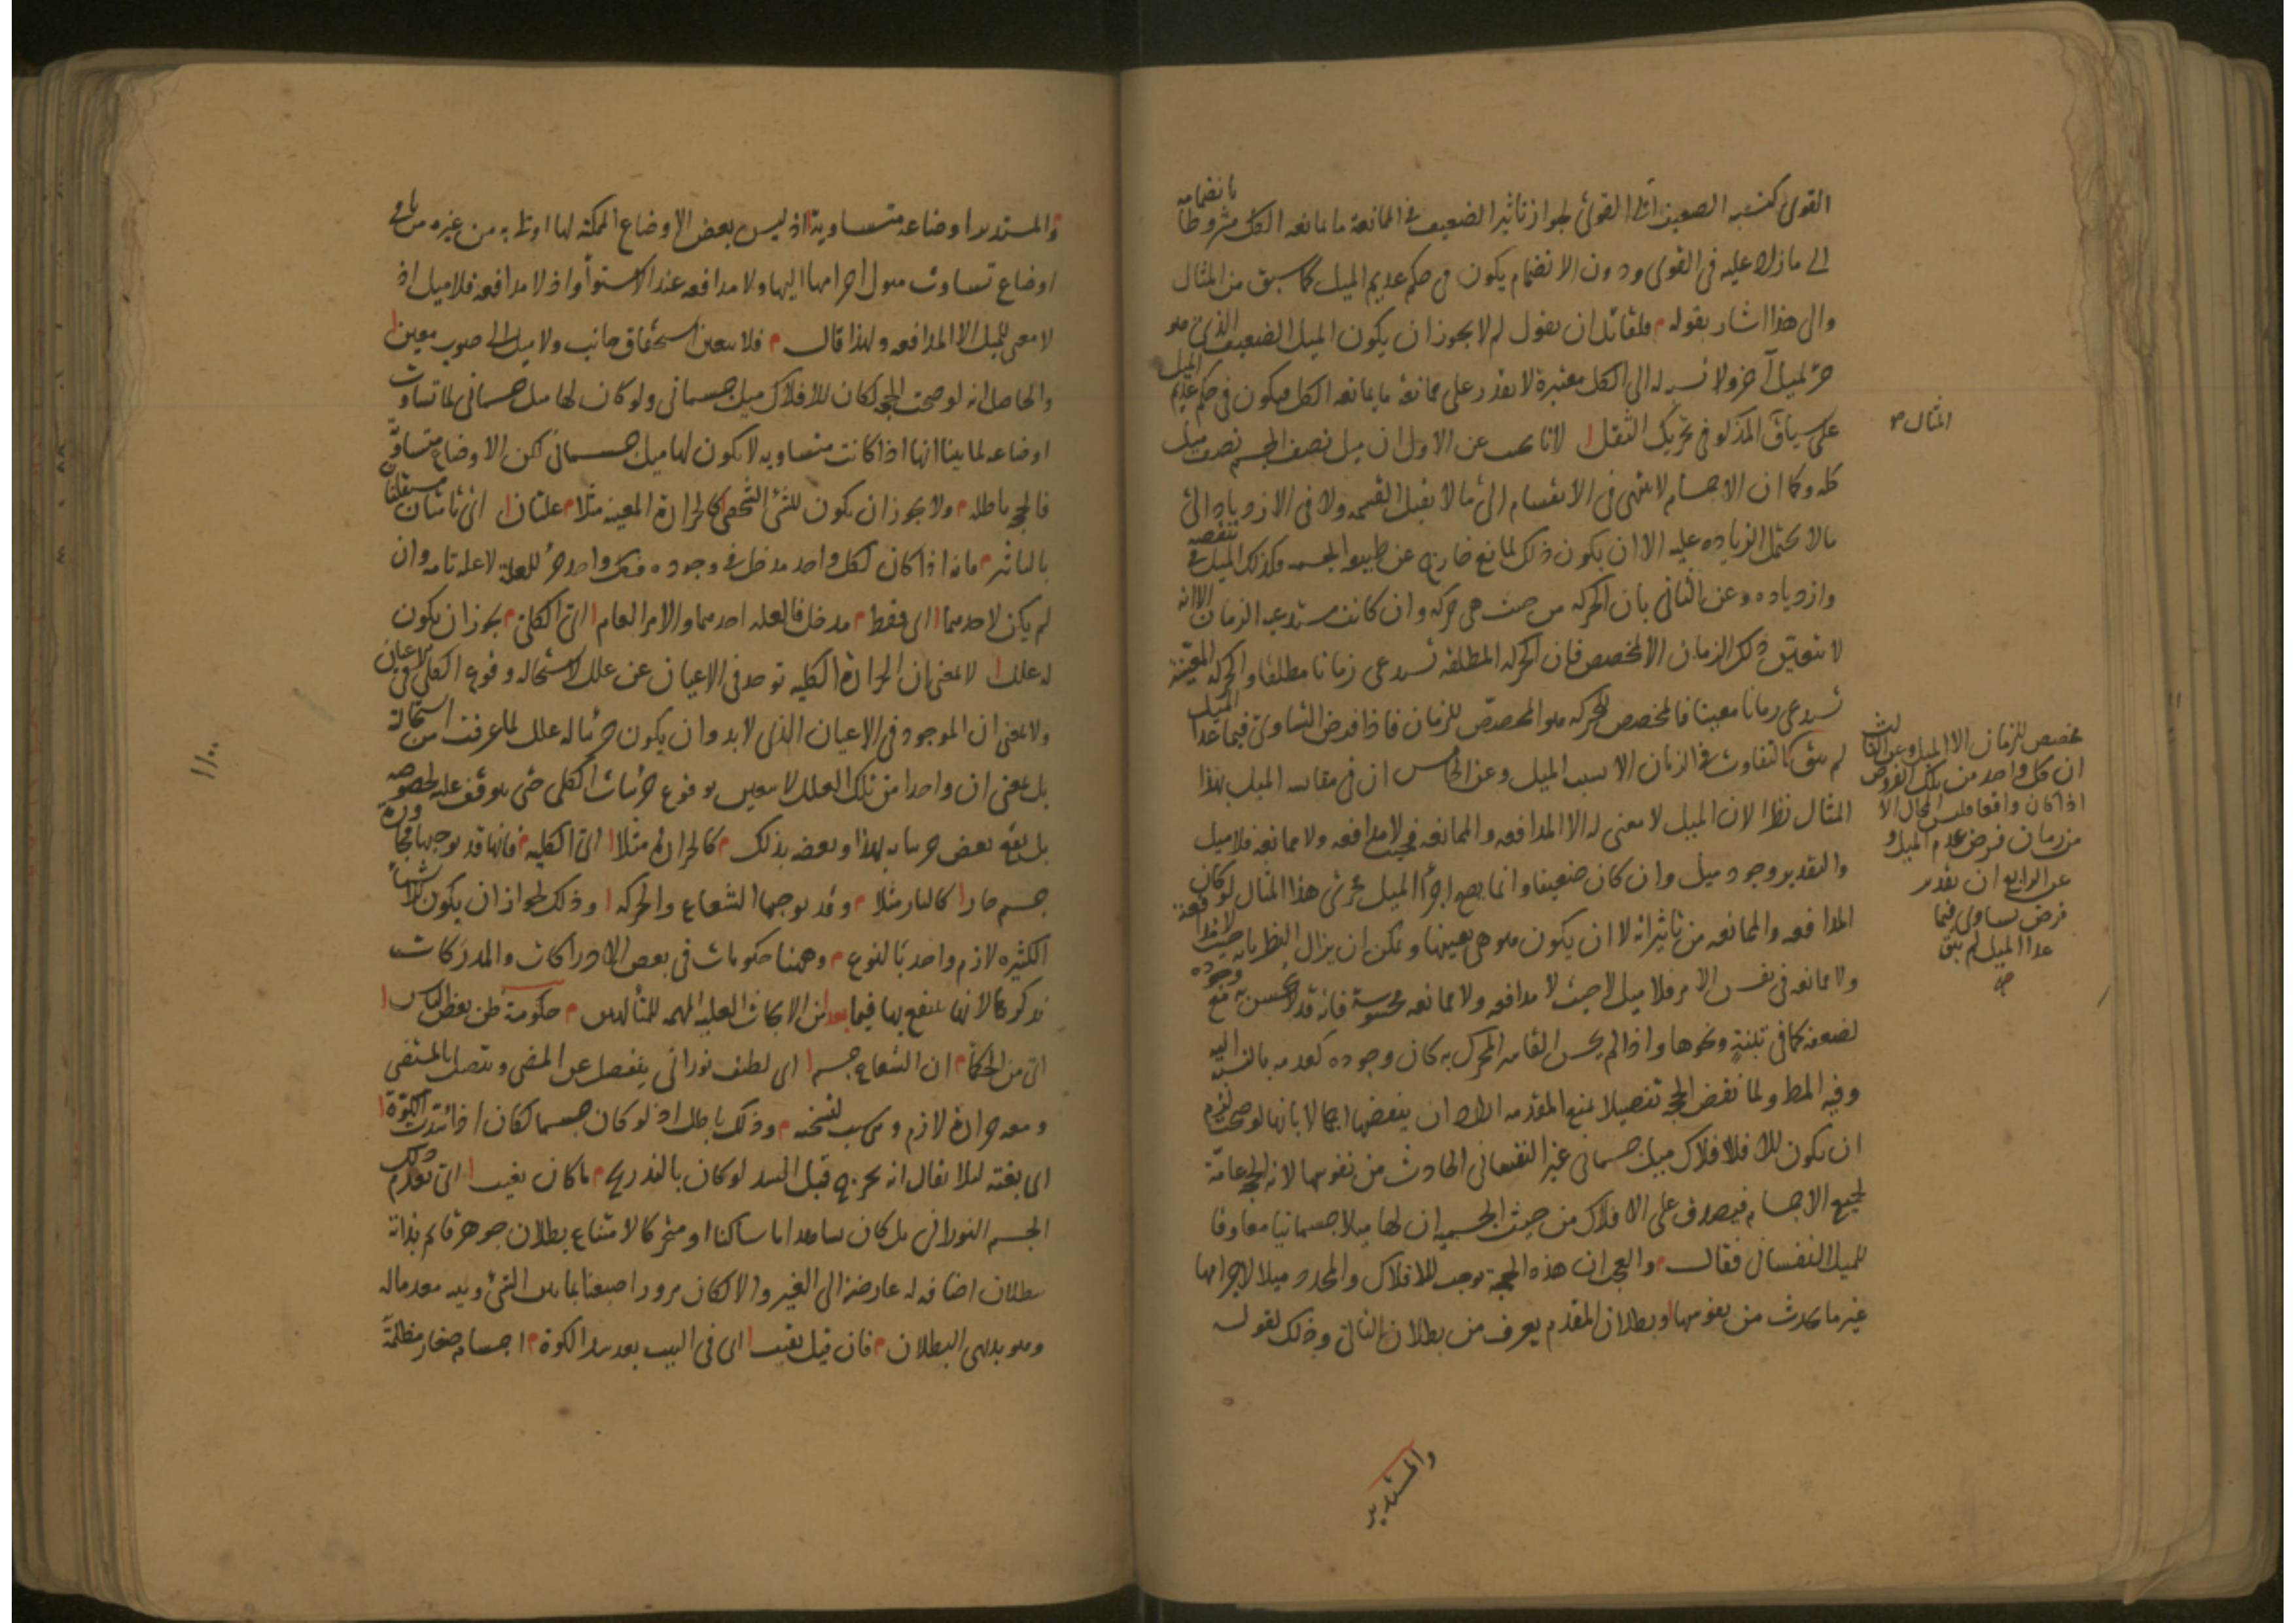 القوى كنسبة الضعيف الى القوى لجواز تاثير الضعيف فى الممانعة ما يمانعه الكل مشروطا بانضمامه
الى ما زاد عليه فى القوى ودون الانضمام يكون فى حكم عديم الميل كما سبق من المثال
والى هذا اشار بقوله م فلقائل ان يقول لم لا يجوز ان يكون الميل الضعيف الذى هو
جزء لميل آخر ولا نسبة له الى الكل معتبرة لا يقدر على ممانعة ما يمانعه الكل فيكون فى حكم عديم الميل
على سياق المذكور فى تحريك الثقل ا لانا نجيب عن الاول ان ميل نصف الجسم نصف ميل
كله وكما ان الاجسام لا تنتهى فى الانقسام الى ما لا يقبل القسمة ولا فى الازدياد الى
ما لا يحتمل الزيادة عليه الا ان يكون ذلك لمانع خارج عن طبيعة الجسمية فكذلك الميل فى تنقصه
وازدياده وعن الثانى بان الحركة من حيث هى حركة وان كانت مستدعية الزمان الا انه
لا يتعين ذلك الزمان الا لمخصص فان الحركة المطلقة تستدعى زمانا مطلقا والحركة المعينة
تستدعى زمانا معينا فالمخصص للحركة هو المخصص للزمان فاذا فرض التساوى فيما عدا الميل
لم يبق كالتفاوت فى الزمان الا بسبب الميل وعن الخامس ان فى مقايسة الميل بهذا
المثال نظرا لان الميل لا معنى له الا المدافعة والممانعة فحيث لا مدافعة ولا ممانعة فلا ميل
والتقدير وجود ميل وان كان ضعيفا وانما يصح اجراء الميل مجرى هذا المثال لو كان
المدافعة والممانعة من تاثيراته لا ان يكون هو هى بعينها ويمكن ان يزال النظر بانه حيث لا مدافعة
ولا ممانعة فى نفس الامر فلا ميل لا حيث لا مدافعة ولا ممانعة محسوسة فانه قد لا يحس به مع وجوده
لضعفه كما فى تبنة ونحوها واذا لم يحس القاسر المحرك به كان وجوده كعدمه بالنسبة اليه
وفيه المط ولما نقض الحجة تفصيلا بمنع المقدمة اراد ان ينقضها اجمالا بانها لو صحت لزم
ان يكون للافلاك ميل جسمانى غير النفسانى الحادث من نفوسها لان الحجة عامة
لجميع الاجسام فيصدق على الافلاك من حيث الجسمية ان لها ميلا جسمانيا معاوقا
للميل النفسانى فقال م والعجب ان هذه الحجة توجب للافلاك والمحدد ميلا لاجرامها
غير ما يحدث من نفوسها ا وبطلان المقدم يعرف من بطلان التالى وذلك لقوله
والمستدير
المثال صح
مخصص للزمان الا الميل وعن الثالث
ان كل واحد من تلك الفروض
اذا كان واقعا فليس المحال الا
من زمان فرض عدم الميل و
عن الرابع ان بقدر
فرض تساوى فيما
عدا الميل لم يبق
صح
م والمستدير اوضاعه متساوية ا اذ ليس بعض الاوضاع الممكنة لها اولى به من غيره من باقى
اوضاع تساوت ميول اجرامها اليها ولا مدافعة عند الاستواء واذ لا مدافعة فلا ميل اذ
لا معنى للميل الا المدافعة ولهذا قال م فلا يتعين استحقاق جانب ولا ميل الى صوب معين ا
والحاصل انه لو صحت الحجة لكان للافلاك ميل جسمانى ولو كان لها ميل جسمانى لما تساوت
اوضاعه لما بينا انها اذا كانت متساوية لا يكون لها ميل جسمانى لكن الاوضاع متساوية
فالحجة باطلة م ولا يجوز ان يكون للشئ الشخصى ا كالحرارة المعينة مثلا م علتان ا اى تامتان مستقلتان
بالتاثير م فانه اذا كان لكل واحد مدخل فى وجوده فكل واحد جزء للعلة لا علة تامة وان
لم يكن لاحدهما ا اى فقط م مدخل فالعلة احدهما والامر العام ا اى الكلى م يجوز ان يكون
له علل ا لا بمعنى ان الحرارة الكلية توجد فى الاعيان عن علل لاستحالة وقوع الكلى فى الاعيان
ولا بمعنى ان الموجود فى الاعيان الذى لا بد وان يكون جزئيا له علل لما عرفت من استحالته
بل بمعنى ان واحدا من تلك العلل لا يتعين لوقوع جزئيات الكلى حتى يتوقف عليه بخصوصه
بل يقع بعض جزئياته بهذا وبعضه بذلك م كالحرارة مثلا ا اى الكلية م فانها قد يوجبها مجاورة
جسم حار ا كالنار مثلا م وقد يوجبها الشعاع والحركة ا وذلك لجواز ان يكون للاشياء
الكثيرة لازم واحد بالنوع م وههنا حكومات فى بعض الادراكات والمدركات
نذكرها لانها ينتفع بها فيما بعد ا من الابحاث العلمية المهمة للمتألهين م حكومة ظن بعض الناس ا
اى من الحكماء م ان الشعاع جسم ا اى لطيف نورانى ينفصل عن المضى ويتصل بالمستضى
ومعه حرارة لازمه وهى سبب تسخنه م وذلك باطل اذ لو كان جسما لكان اذا سدت الكوة ا
اى بغتة لئلا يقال انه يخرج قبل السد لو كان بالتدريج م ما كان يغيب ا اى يعدم ذلك
الجسم النورانى بل كان يشاهد اما ساكنا او متحركا لامتناع بطلان جوهر قائم بذاته
ببطلان اضافة له عارضة الى الغير والا لكان مرور اصبعنا بما بين الشئ ويليه معدما له
وهو بديهى البطلان م فان قيل بقيت ا اى فى البيت بعد سد الكوة م اجسام صغار مظلمة